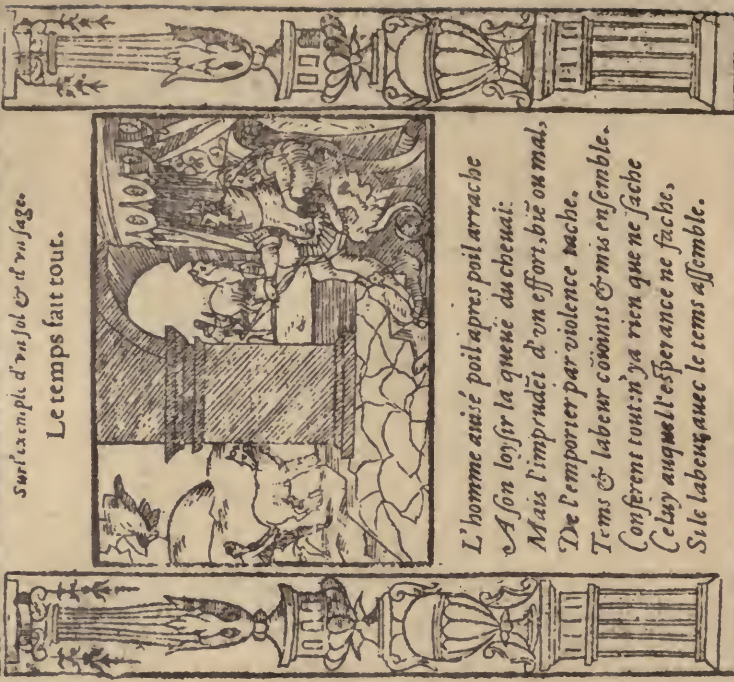 Sur l'exemple d'vn fol & d'vn sage.
Le temps fait tout.
L'homme auisé poil apres poil arrache
A son loysir la queuë du cheual:
Mais l'imprudẽt d'vn effort, biẽ ou mal,
De l'emporter par violence tache.
Tems & labeur cõioints & mis ensemble.
Conferent tout: n'ya rien que ne sache
Celuy auquel l'esperance ne fache,
Si le labeur, auec le tems assemble.